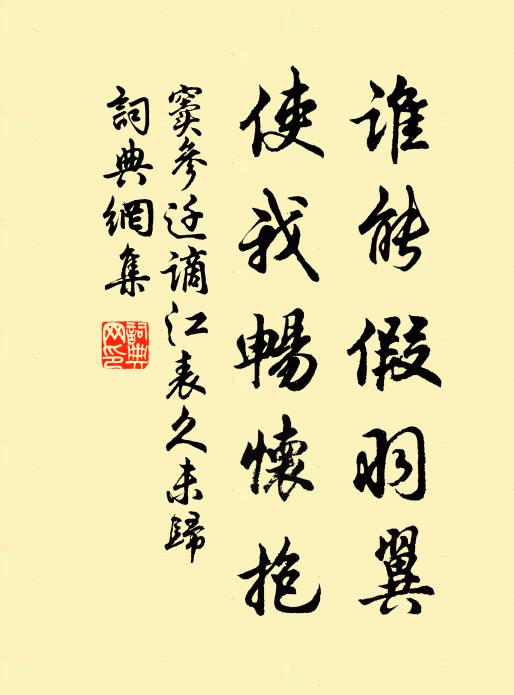 谁能假羽翼
使我暢懷抱
窦參迁谪江表久未歸
詞典網集
詞典网印